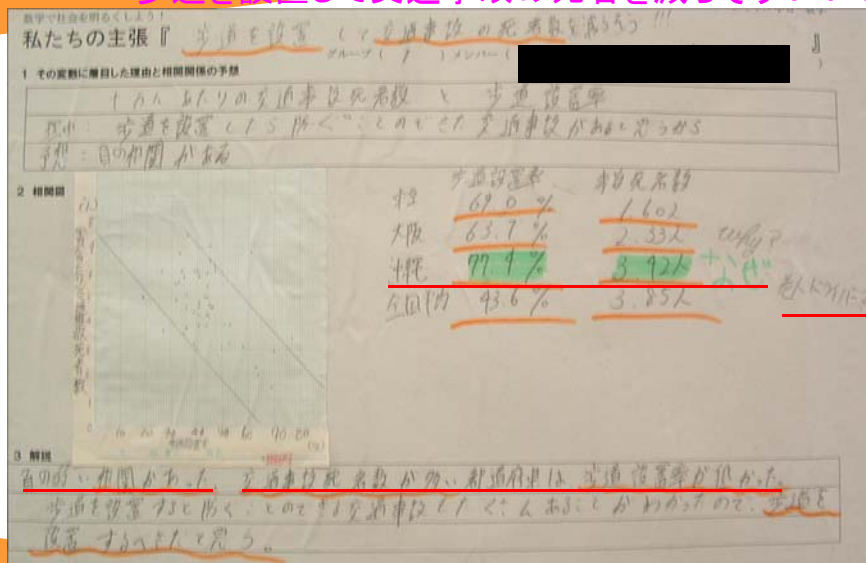 歩道を設置して交通事故の死者を減らそう!!!
数学で社会を明るくしよう!
私たちの主張『 歩道を設置して交通事故の死者数を減らそう!!! 』
グループ( 7 )メンバー( )
1 その変数に着目した理由と相関関係の予想
十万人あたりの交通事故死者数 と 歩道設置率
理由: 歩道を設置したら防ぐことのできた交通事故があると思うから
予想: 負の相関がある
2 相関図
歩道設置率 事故死者数
69.0 % 1.60人
大阪 63.7 % 2.33人 Why?
沖縄 77.4 % 3.42人 なぜ
全国平均 43.6 % 3.85人
3 解説
負の弱い相関があった。交通事故死者数が多い都道府県は、歩道設置率が低かった。
歩道を設置すると防ぐことのできる交通事故はたくさんあることがわかったので、歩道を
設置するべきだと思う。